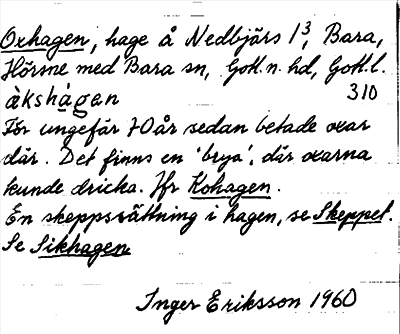 Oxhagen, hage å Nedbjärs 1³, Bara,
Hörsne med Bara sn, Gotl. n. hd, Gotl. l.
àkshàgan 310
För ungefär 70 år sedan betade oxar
där. Det finns en 'brya', där oxarna
kunde dricka. Jfr Kohagen.
En skeppssättning i hagen, se Skeppet.
Se Sikhagen
Inger Eriksson 1960